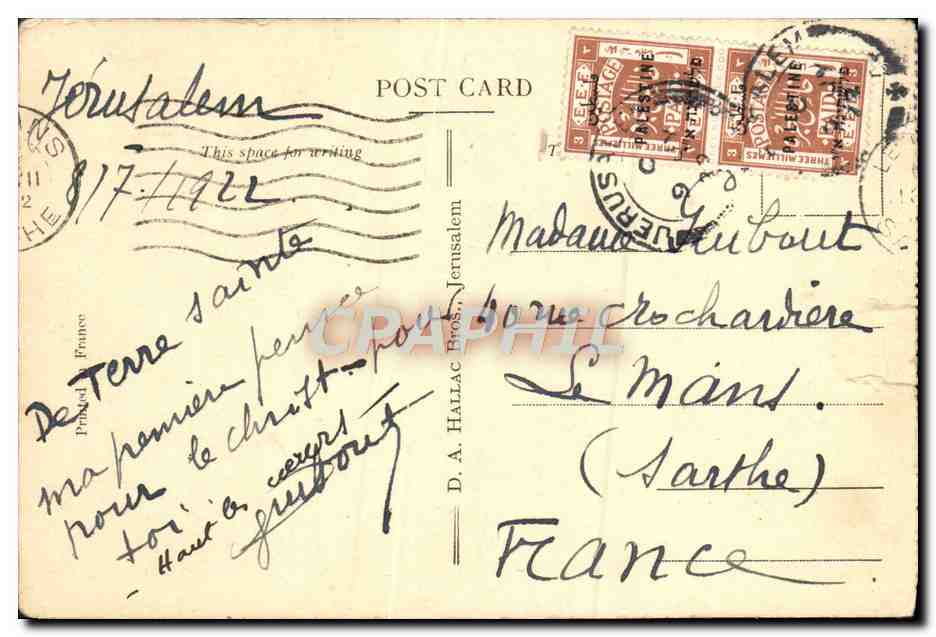 POST CARD
Jérusalem
This space for writing
8/7/1922
De Terre sainte
ma première pensée
pour le christ - pour
toi
Haut les cœurs -
Madame
rue Crochardière
Le Mans.
(Sarthe)
France
D. A. HALLAC Bros., Jerusalem
Printed in France
E.E.F.
POSTAGE
PAID
THREE MILLIEMES
3
PALESTINE
فلسطين
E.E.F.
POSTAGE
PAID
THREE MILLIEMES
3
PALESTINE
JERUSALEM
CPAPHIL